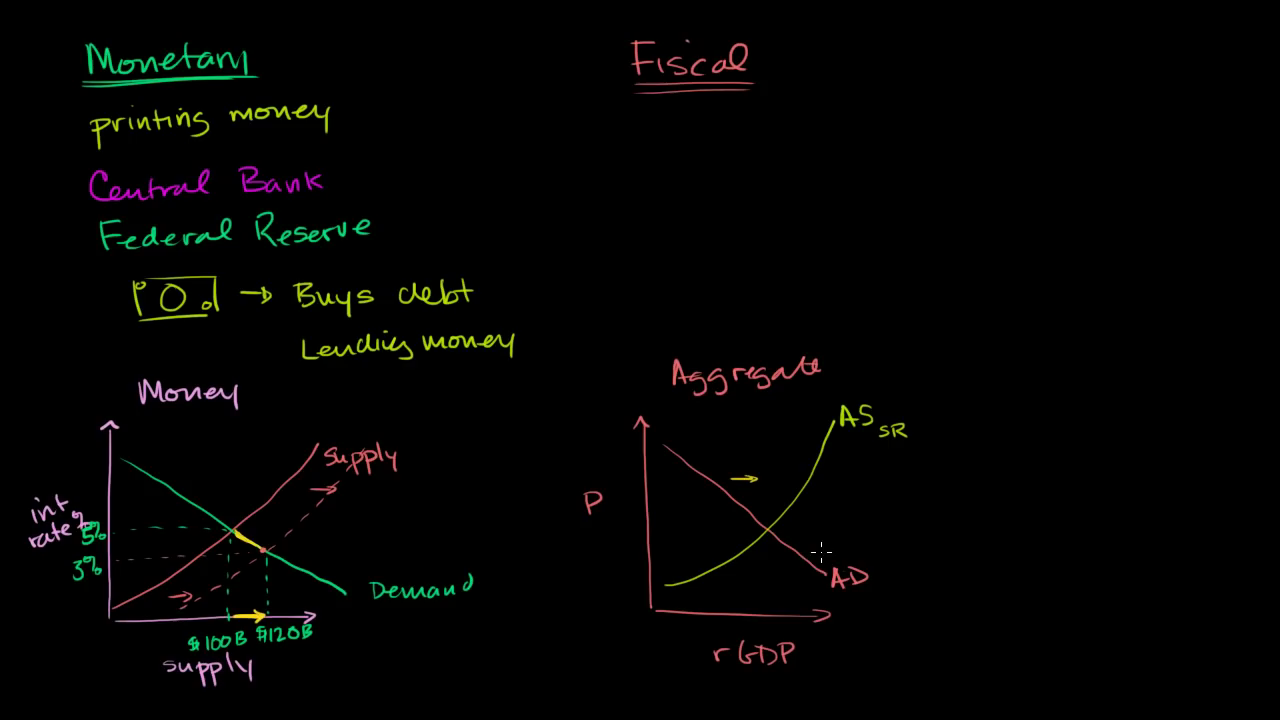 Monetary
printing money
Central Bank
Federal Reserve
→ Buys debt
Lending money
Money
supply
int
rate %
5%
3%
Demand
$100B $120B
supply
Fiscal
Aggregate
AS SR
P
AD
rGDP